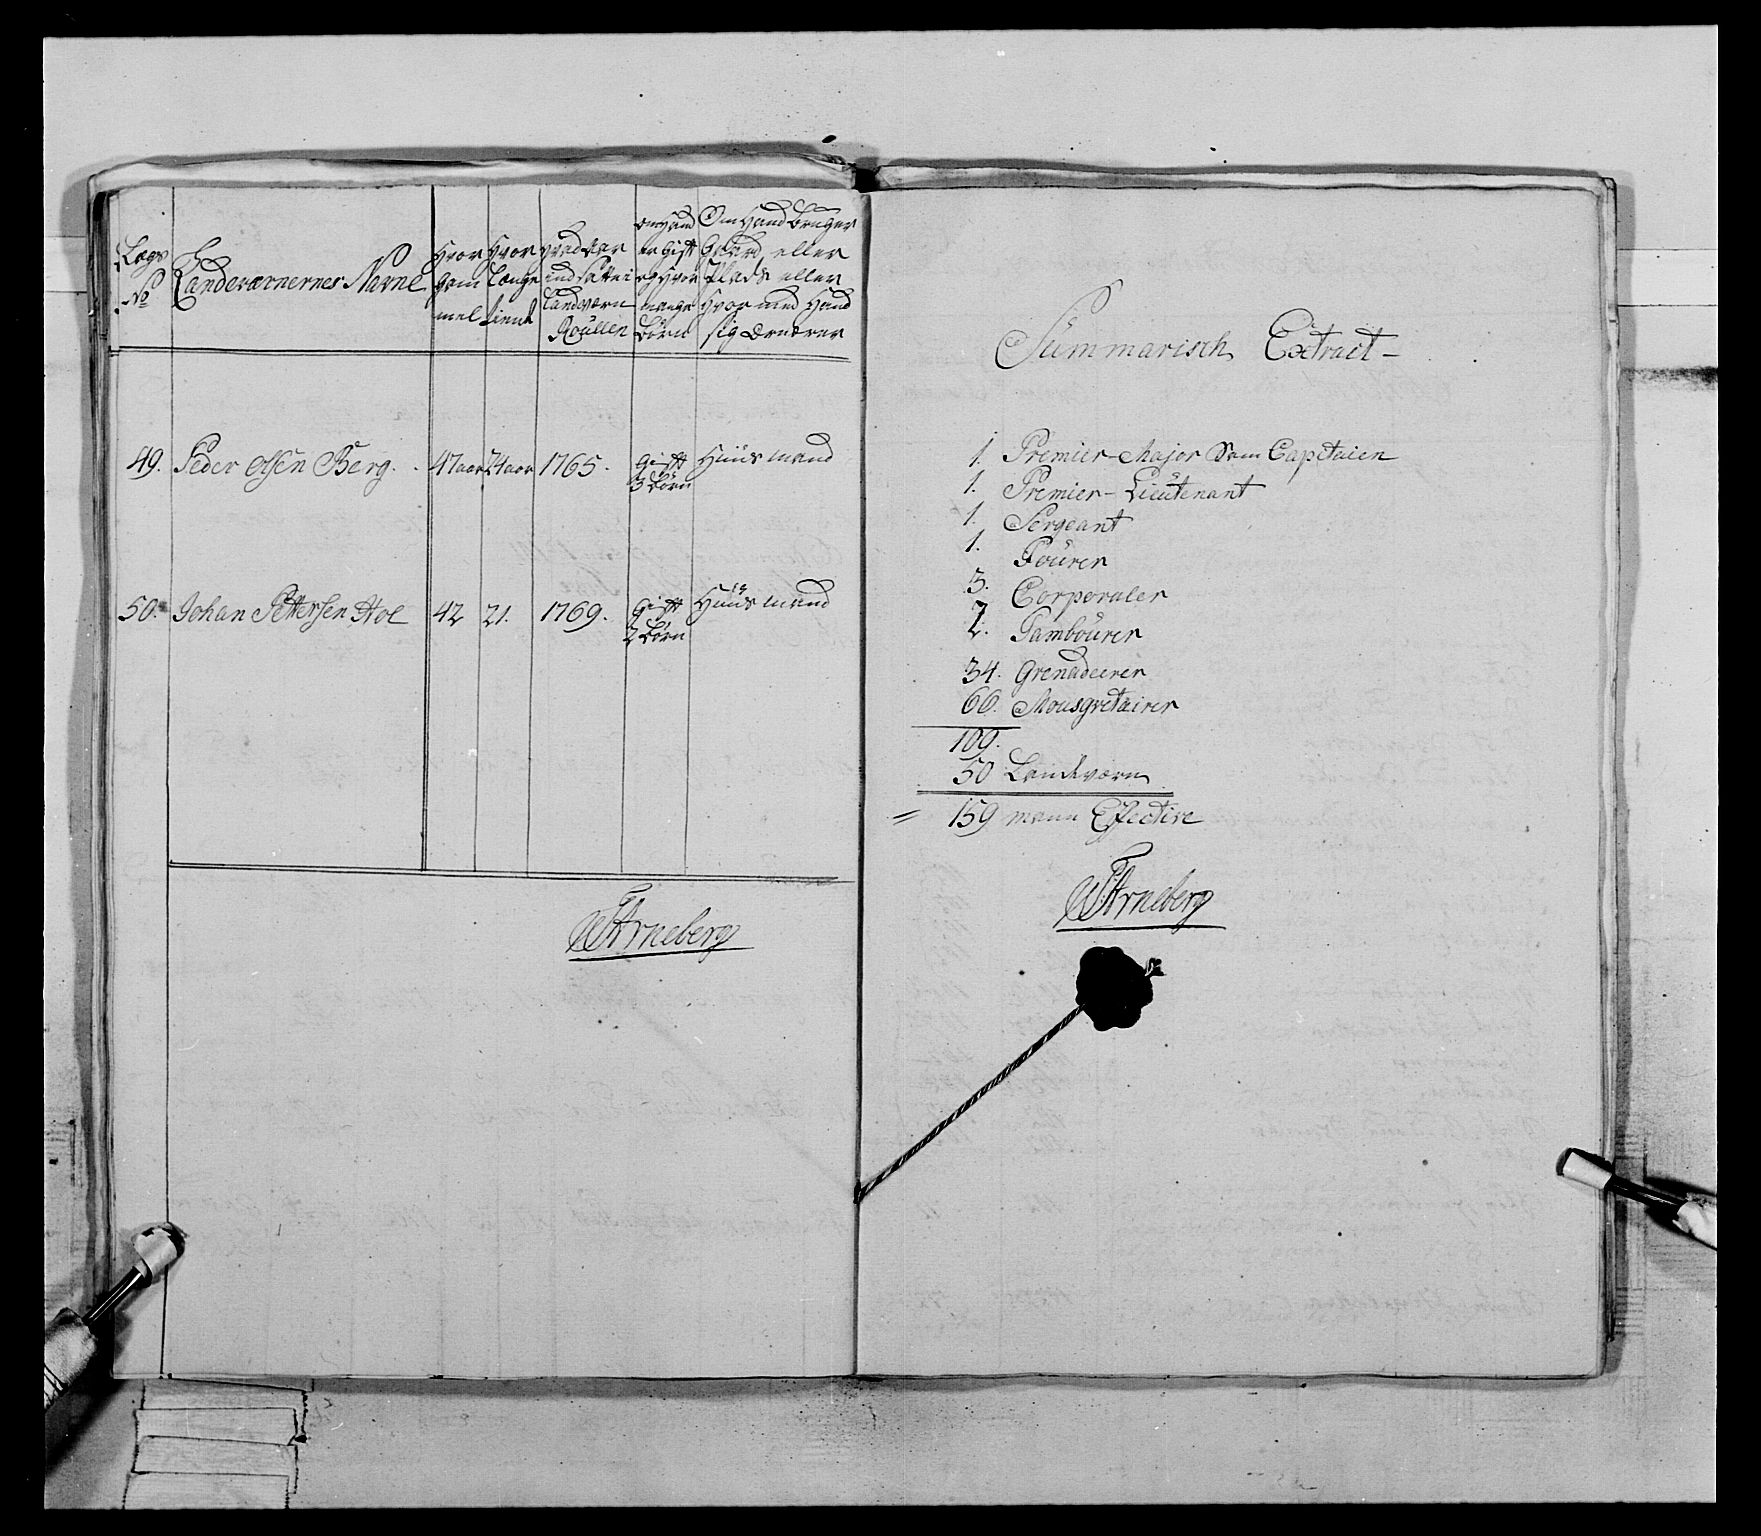 Lægs
No
Landeværnernes Navne
Hvor
gam
mel
Hvor
Længe
tient
Hvad Aar
indsatt i
Landværn
Roullen
Om Hand
er Gift
og Hvor
mange
Börn
Om Hand bruger
Gaard eller
Plads eller
Hvor med Hand
sig Ernærer
49. Peder Olsen Berg. 47 aar 24 aar 1765. Gift Huusmand
3 Börn
50. Johan Pettersen Hol 42 21. 1769. Gift Huusmand
2 Börn
Arneberg
Summarisch Extract
1. Premier-Major Som Capitaien
1. Premier-Lieutenant
1. Sergeant
1. Fourer
3. Corporaler
2. Tambourer
34. Grenadeerer
66. Mousgvetairer
109.
50 Landværn
= 159 mann Effective
Arneberg